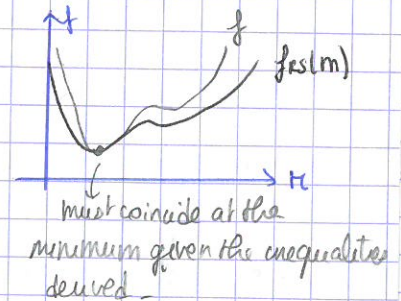 f
f
f_RS(m)
m
must coincide at the
minimum given the inequalities
derived.